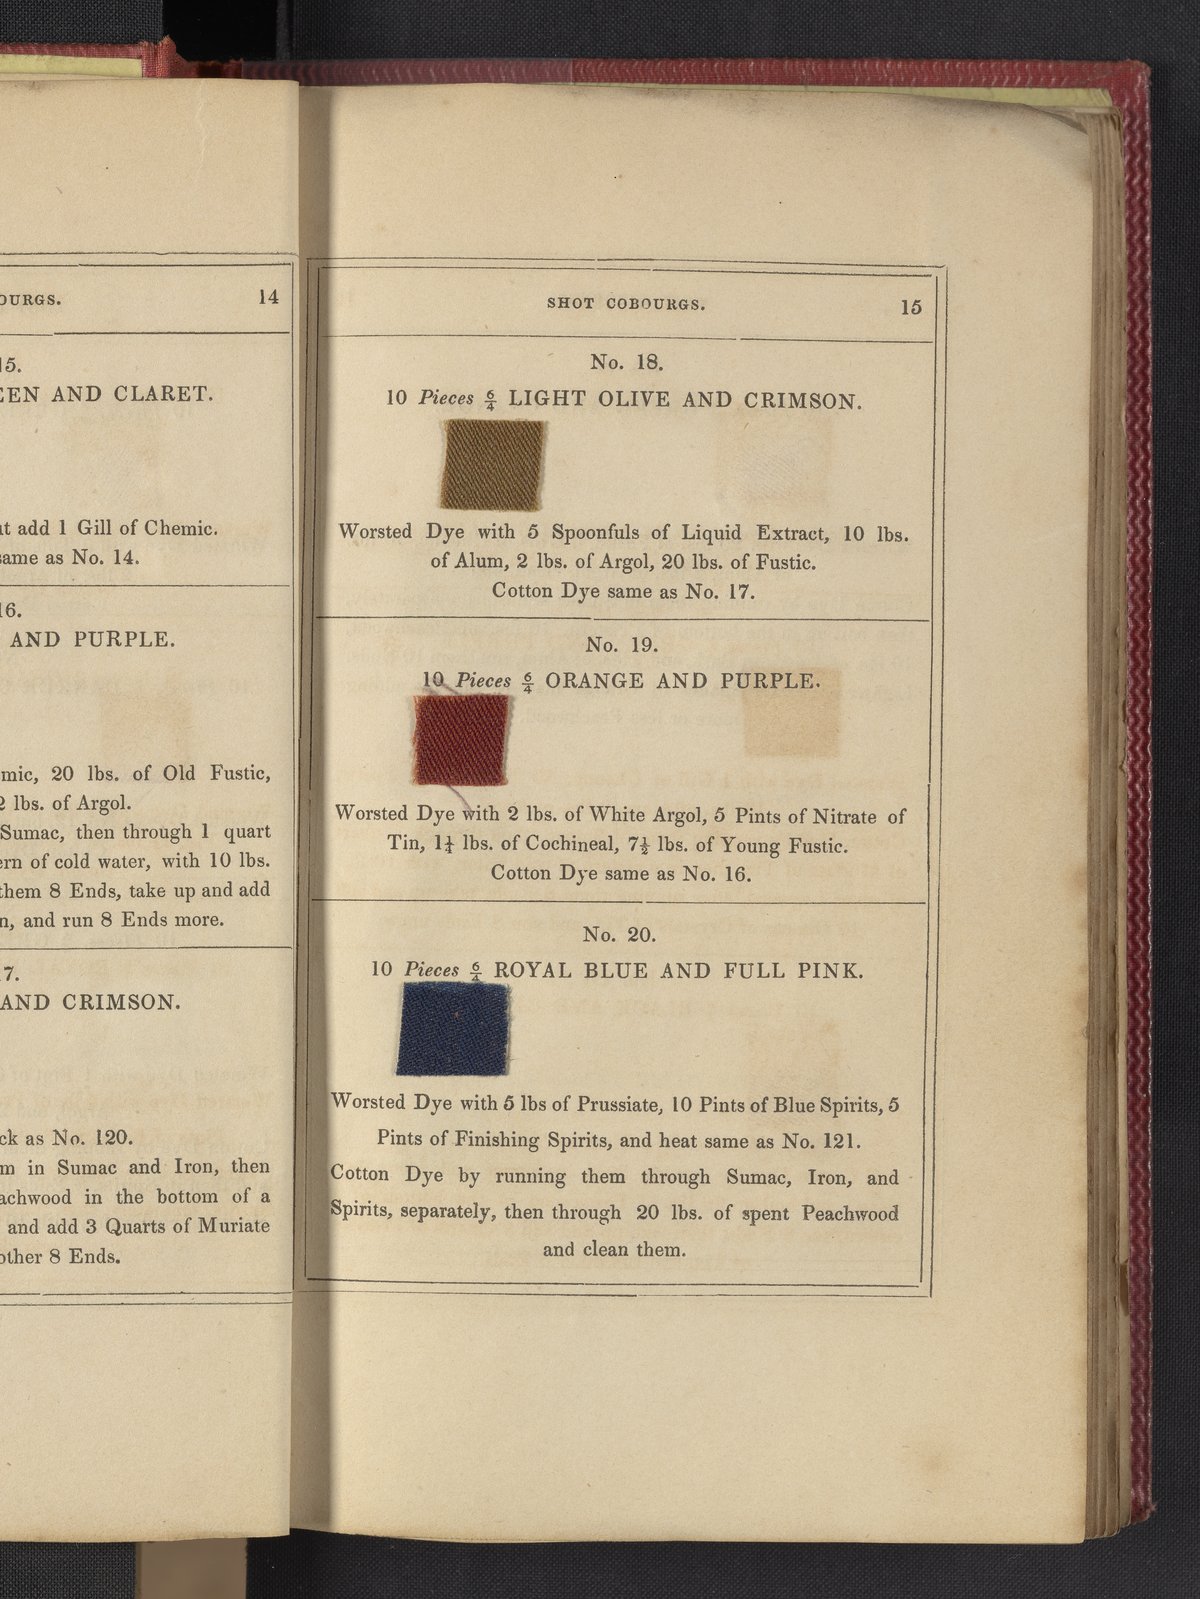 OURGS. 14
15.
EEN AND CLARET.
at add 1 Gill of Chemic.
same as No. 14.
16.
AND PURPLE.
mic, 20 lbs. of Old Fustic,
2 lbs. of Argol.
Sumac, then through 1 quart
ern of cold water, with 10 lbs.
them 8 Ends, take up and add
n, and run 8 Ends more.
7.
AND CRIMSON.
ck as No. 120.
m in Sumac and Iron, then
achwood in the bottom of a
and add 3 Quarts of Muriate
other 8 Ends.
SHOT COBOURGS. 15
No. 18.
10 Pieces 6/4 LIGHT OLIVE AND CRIMSON.
Worsted Dye with 5 Spoonfuls of Liquid Extract, 10 lbs.
of Alum, 2 lbs. of Argol, 20 lbs. of Fustic.
Cotton Dye same as No. 17.
No. 19.
10 Pieces 6/4 ORANGE AND PURPLE.
Worsted Dye with 2 lbs. of White Argol, 5 Pints of Nitrate of
Tin, 1¼ lbs. of Cochineal, 7½ lbs. of Young Fustic.
Cotton Dye same as No. 16.
No. 20.
10 Pieces 6/4 ROYAL BLUE AND FULL PINK.
Worsted Dye with 5 lbs of Prussiate, 10 Pints of Blue Spirits, 5
Pints of Finishing Spirits, and heat same as No. 121.
Cotton Dye by running them through Sumac, Iron, and
Spirits, separately, then through 20 lbs. of spent Peachwood
and clean them.